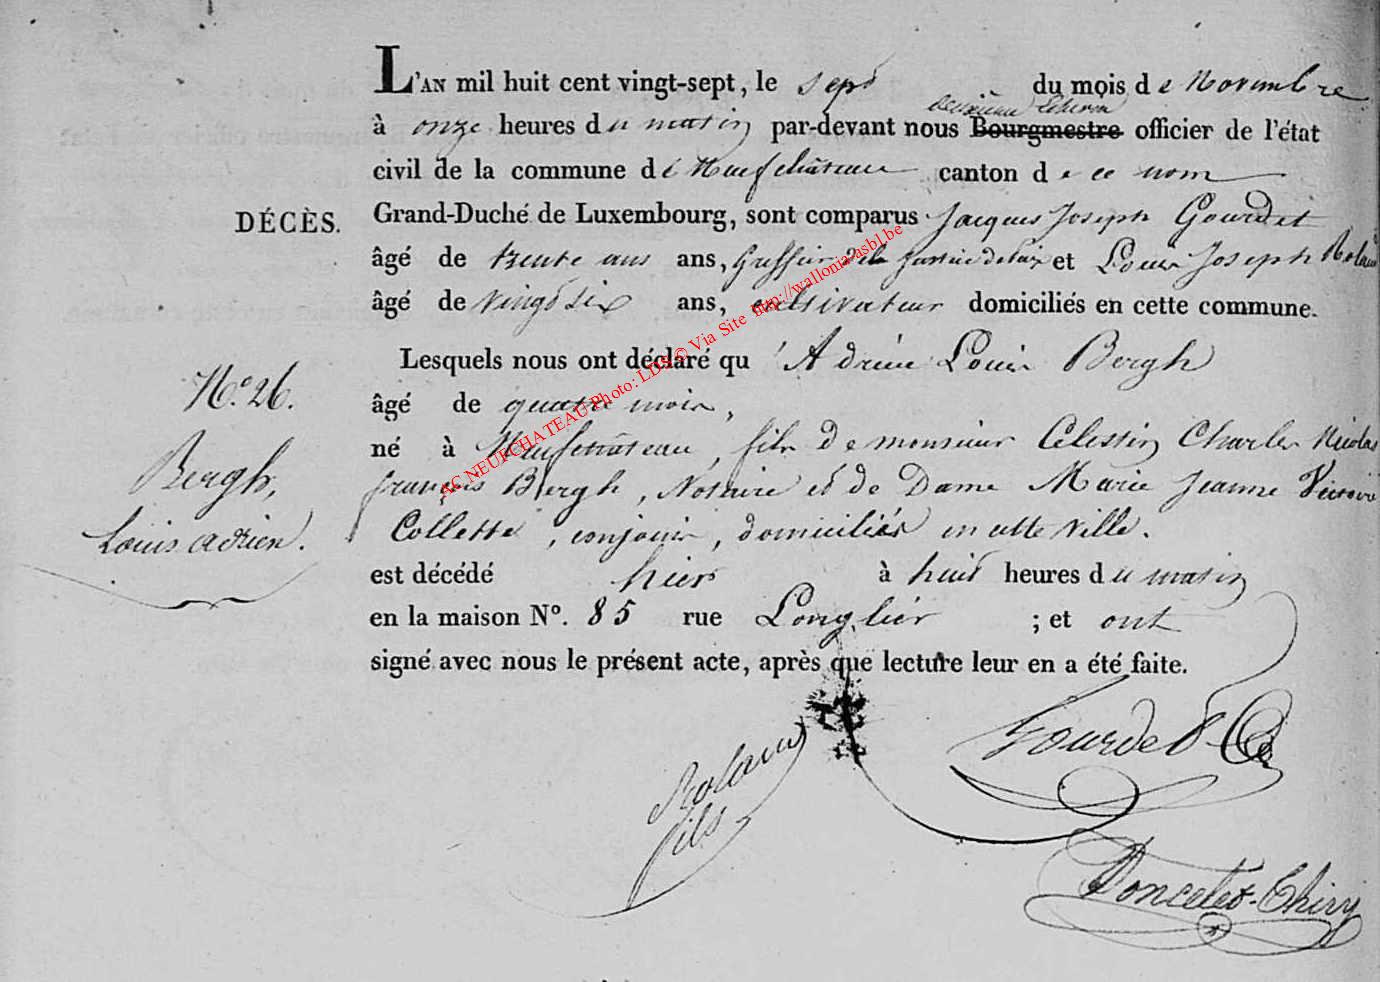 L'AN mil huit cent vingt-sept, le sept du mois de Novembre
deuxième Echevin
à onze heures du matin par-devant nous Bourgmestre officier de l'état
civil de la commune de Neufchateau canton de ce nom
DÉCÈS. Grand-Duché de Luxembourg, sont comparus Jacques Joseph Gourdet
âgé de trente ans ans, Greffier de la justice de Paix et Louis Joseph Roland
âgé de vingt six ans, cultivateur domiciliés en cette commune.
Lesquels nous ont déclaré qu'Adrien Louis Bergh
N.º 26. âgé de quatre mois,
né à Neufchâteau, fils de monsieur Celestin Charles Nicolas
Bergh, françois Bergh, Notaire et de Dame Marie Jeanne Victoire
Louis adrien. Collette, conjoins, domiciliés en cette ville.
est décédé hier à huit heures du matin
en la maison Nº. 85 rue Longlier ; et ont
signé avec nous le présent acte, après que lecture leur en a été faite.
AC NEUFCHATEAU Photo: LDS © Via Site http://wallonia-asbl.be
Gourdet
Roland
fils
Poncelet-Thiry